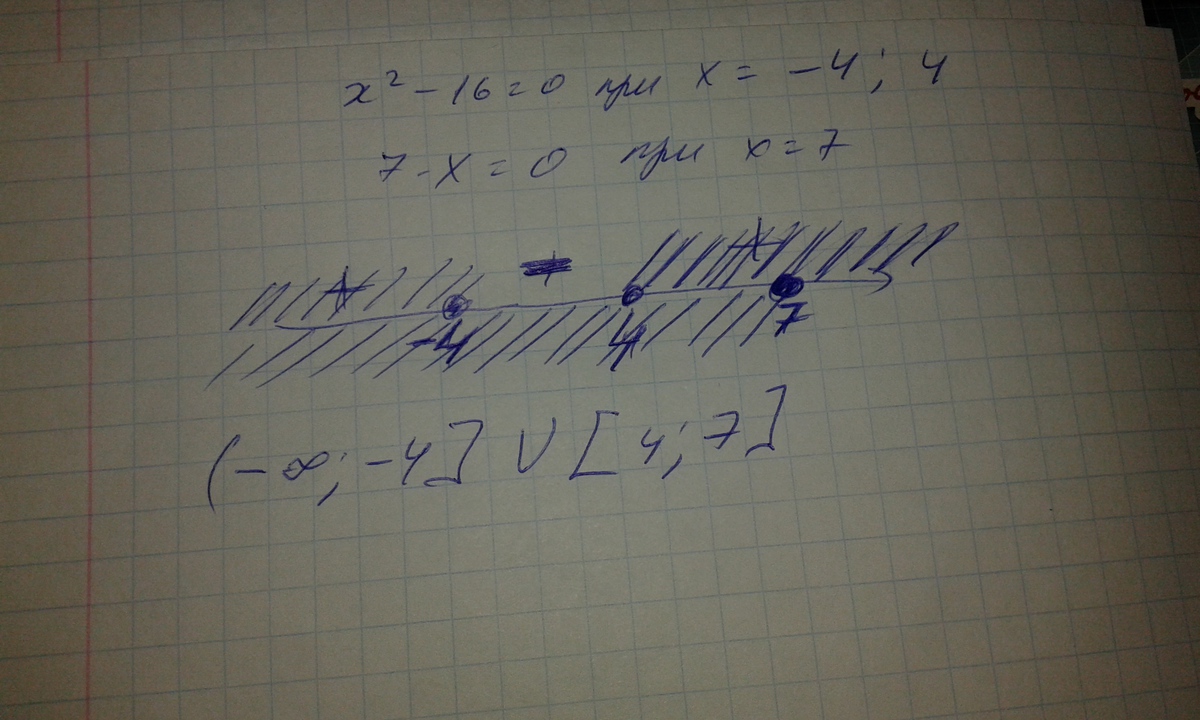 x² - 16 = 0 при x = -4; 4
7 - x = 0 при x = 7
+ - +
-4 4 7
(-∞; -4] ∪ [4; 7]